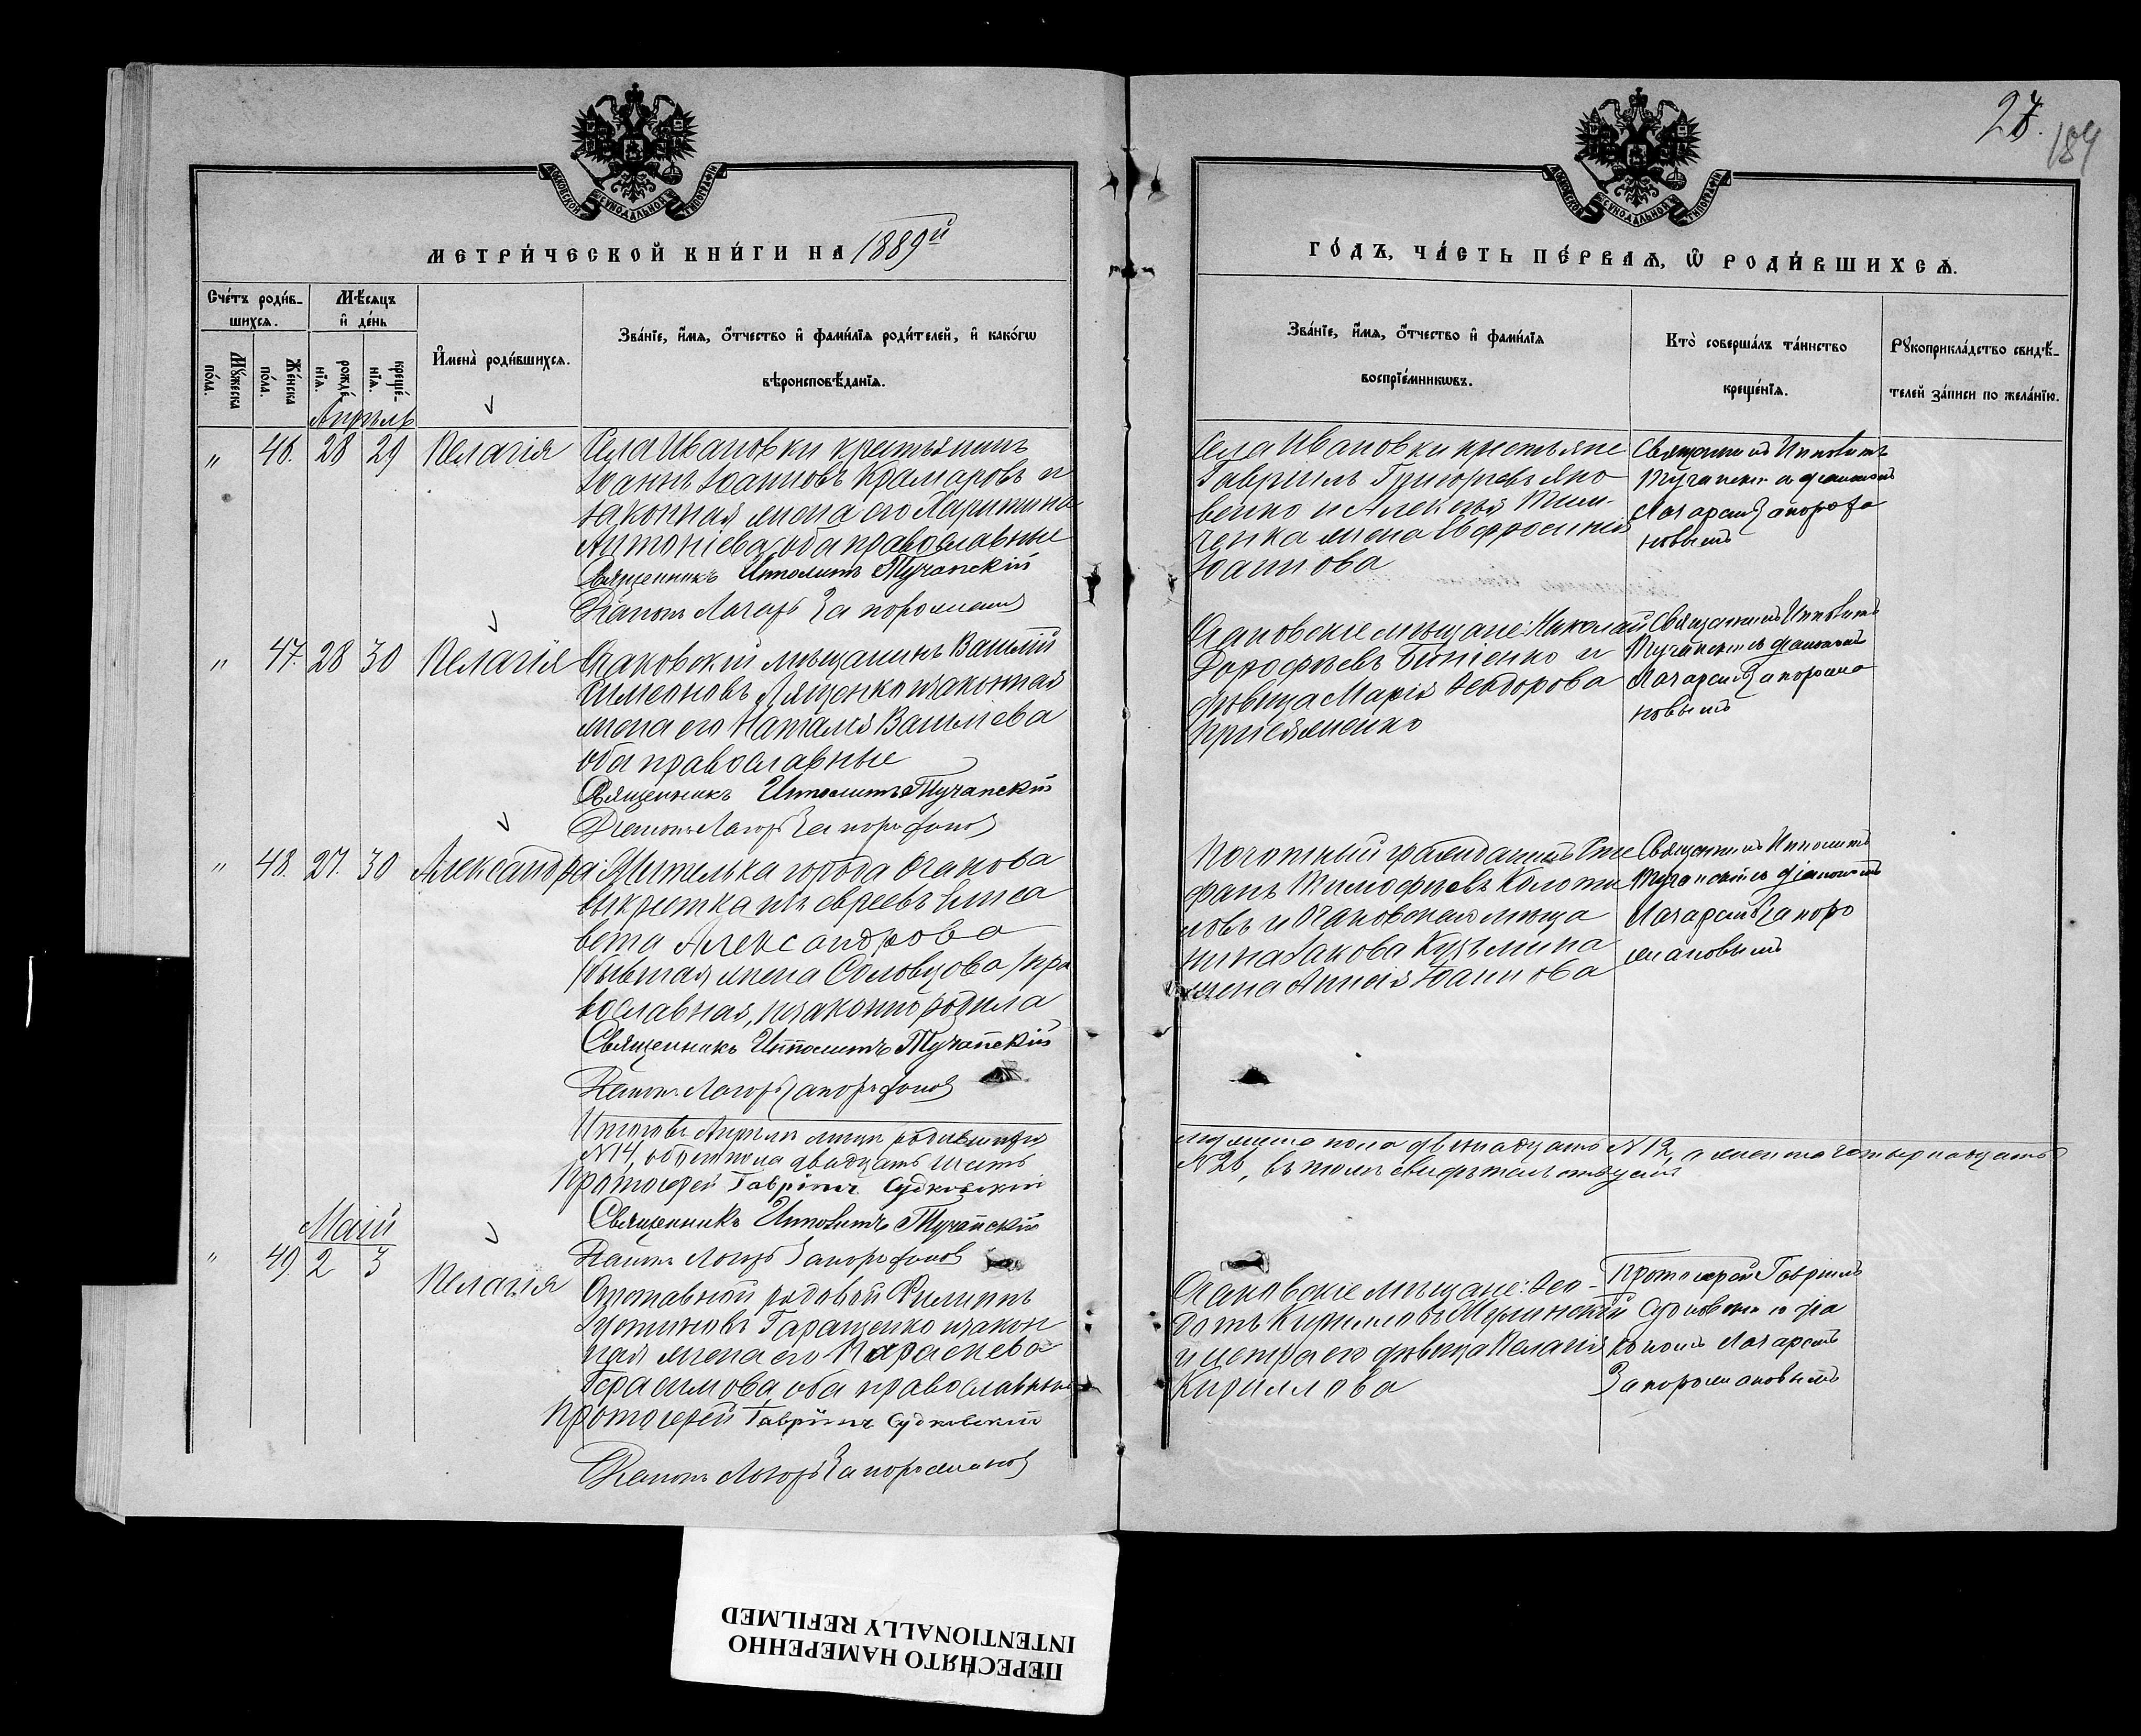 27. 189
МОСКОВСКОЙ СѴНОДАЛЬНОЙ ТИПОГРАФІИ
МЕТРИ́ЧЕСКОЙ КНИ́ГИ НА 1889й
Сче́тъ роди́вшихсѧ.
Мѣ́сѧцъ и҆ де́нь
Мꙋ́жеска по́ла.
Же́нска по́ла.
рожде́нїѧ.
креще́нїѧ.
И҆мена̀ роди́вшихсѧ.
Зва́нїе, и҆́мѧ, ѻ҆́тчество и҆ фами́лїѧ роди́телей, и҆ како́гѡ
вѣроисповѣ́данїѧ.
Апрѣль
" 46. 28 29 Пелагія
Села Ивановки крестьянинъ
Іоаннъ Іоанновъ Крамаровъ и
законная жена его Харитина
Антоніева, оба православные
Священникъ Ипполитъ Тучапскій
Діаконъ Лазарь Запорожановъ
" 47. 28 30 Пелагія
Очаковскій мѣщанинъ Василій
Симеоновъ Ляшенко и законная
жена его Наталія Васильева
оба православные
Священникъ Ипполитъ Тучапскій
Діаконъ Лазарь Запорожановъ
" 48. 27. 30 Александра
Жителька города Очакова
выкрестка изъ евреевъ Елиса
вета Александрова
/бывшая жена Соловцова/ пра
вославная, незаконно родила
Священникъ Ипполитъ Тучапскій
Діаконъ Лазарь Запорожановъ
Итого въ Апрѣлѣ мѣсяцѣ родившихся
N 14, обоего пола двадцать шесть
Протоіерей Гавріилъ Судковскій
Священникъ Ипполитъ Тучапскій
Діаконъ Лазарь Запорожановъ
Май
" 49. 2 3 Пелагія
Отставной рядовой Филиппъ
Гаращенко и закон
ная жена его Параскева
Герасимова оба православные
Протоіерей Гавріилъ Судковскій
Діаконъ Лазарь Запорожановъ
МОСКОВСКОЙ СѴНОДАЛЬНОЙ ТИПОГРАФІИ
ГО́ДЪ, ЧА́СТЬ ПЕ́РВАѦ, Ѡ҆ РОДИ́ВШИХСѦ.
Зва́нїе, и҆́мѧ, ѻ҆́тчество и҆ фами́лїѧ
воспрїе́мникѡвъ.
Кто̀ соверша́лъ та́инство
креще́нїѧ.
Рꙋкоприкла́дство свидѣ́телей за́писи по жела́нїю.
Села Ивановки крестьяне
Гавріилъ Григорьевъ Яко
венко и Алексѣя Тим
ченка жена Евфросинія
Іоаннова
Священникъ Ипполитъ
Тучапскій съ діакономъ
Лазаремъ Запорожа
новымъ
Очаковскіе мѣщане: Николай
Дорофѣевъ и
дѣвица Марія Ѳеодорова
Священникъ Ипполитъ
Тучапскій съ діакономъ
Лазаремъ Запорожа
новымъ
Почотный гражданинъ Сте
фанъ Тимофѣевъ
ловъ и Очаковскаго мѣща
нина Іакова Кузьмина
жена Анна Іоаннова
Священникъ Ипполитъ
Тучапскій съ діакономъ
Лазаремъ Запоро
жановымъ
мужеска пола двенадцать N 12, а женска четырнадцать
N 26, въ томъ свидѣтельствуемъ
Очаковскіе мѣщане: Ѳео-
дотъ Кирилловъ Мулинскій
и сестра его дѣвица Пелагія
Кириллова
Протоіерей Гавріилъ
Судковскій съ діа
кономъ Лазаремъ
Запорожановымъ
ПЕРЕСНЯТО НАМЕРЕННО
INTENTIONALLY REFILMED